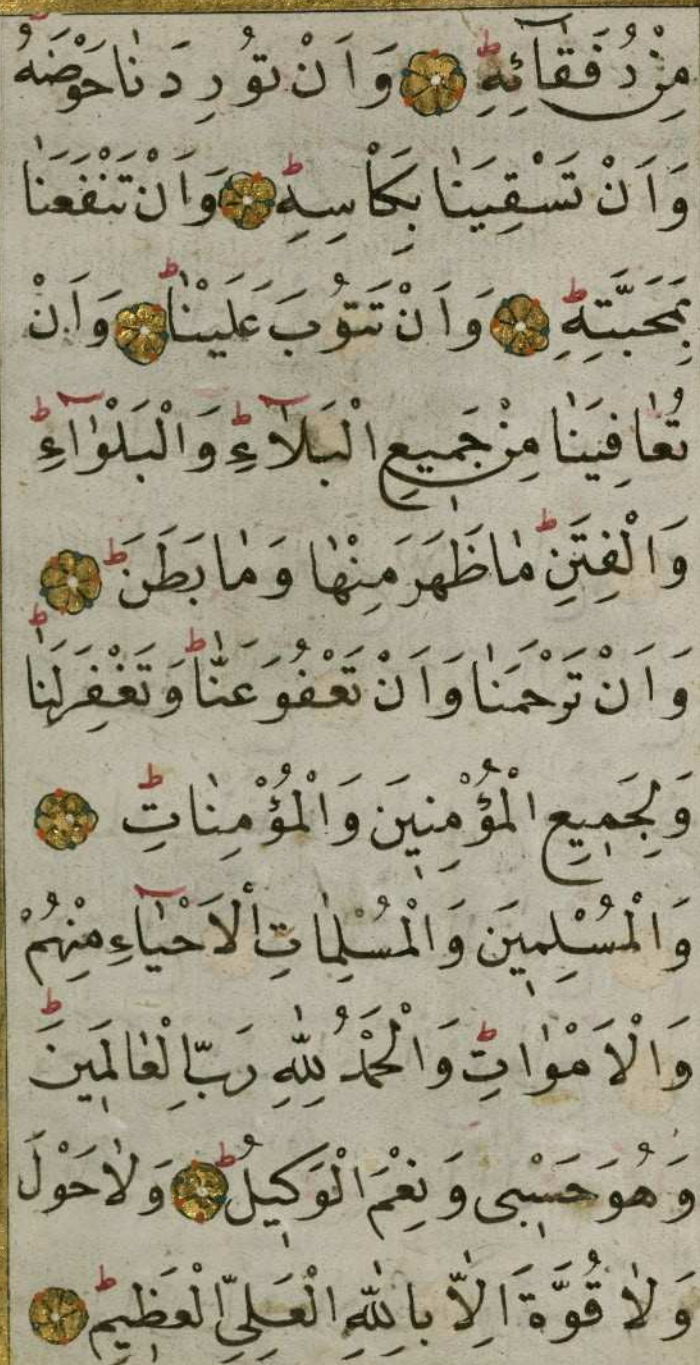 مِنْ رُفَقَآئِهِ ط وَاَنْ تُورِدَنَا حَوْضَهُ
وَاَنْ تَسْقِيَنَا بِكَاْسِهِ ط وَاَنْ تَنْفَعَنَا
بِمَحَبَّتِهِ ط وَاَنْ تَتُوبَ عَلَيْنَا ط وَاَنْ
تُعَافِيَنَا مِنْ جَمِيعِ الْبَلَآءِ ط وَالْبَلْوَآءِ ط
وَالْفِتَنِ ط مَا ظَهَرَ مِنْهَا وَمَا بَطَنَ ط
وَاَنْ تَرْحَمَنَا وَاَنْ تَعْفُوَ عَنَّا ط وَتَغْفِرَ لَنَا ط
وَلِجَمِيعِ الْمُؤْمِنِينَ وَالْمُؤْمِنَاتِ ط
وَالْمُسْلِمِينَ وَالْمُسْلِمَاتِ اَلْاَحْيَآءِ مِنْهُمْ
وَالْاَمْوَاتِ ط وَالْحَمْدُ لِلّٰهِ رَبِّ الْعَالَمِينَ ط
وَهُوَ حَسْبِى وَنِعْمَ الْوَكِيلُ ط وَلَا حَوْلَ
وَلَا قُوَّةَ اِلَّا بِاللّٰهِ الْعَلِىِّ الْعَظِيمِ ط